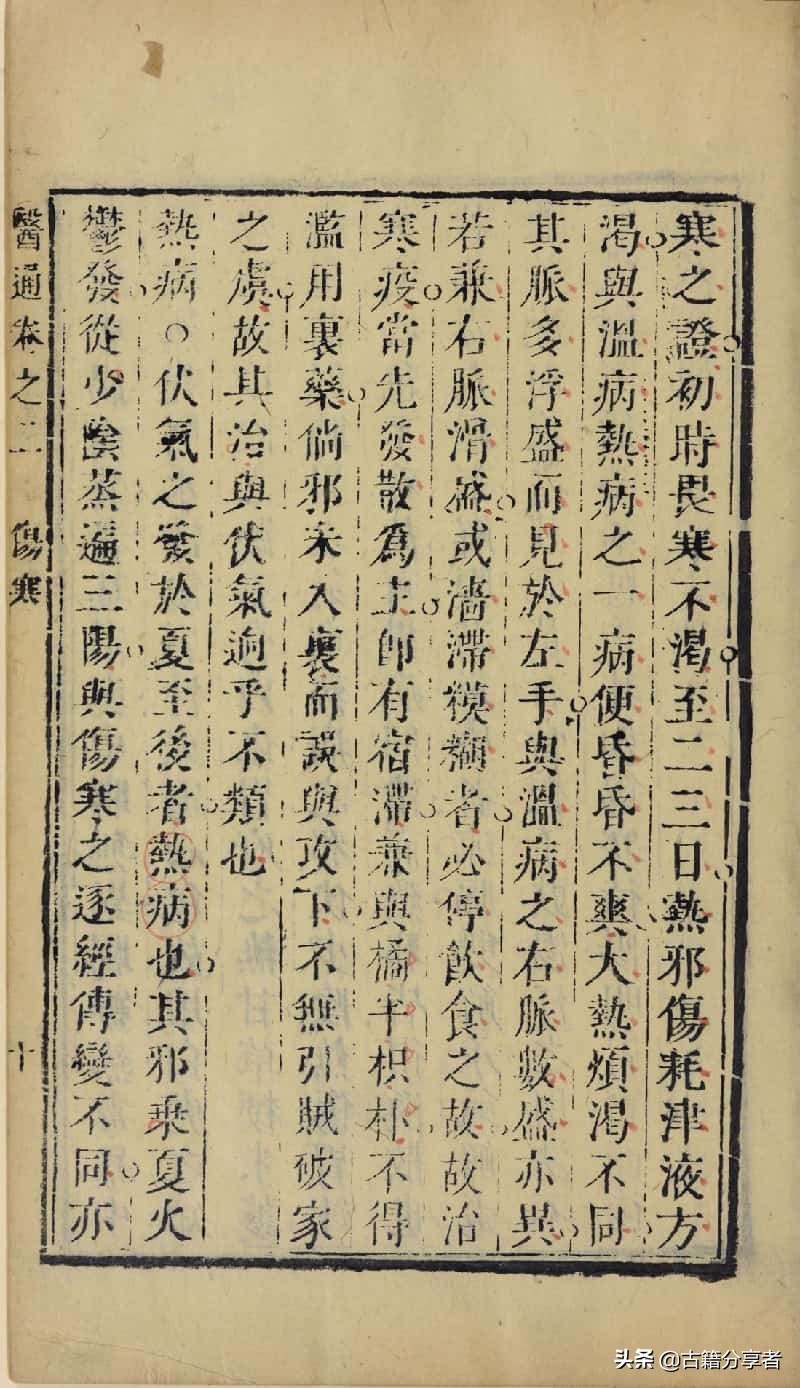 寒之證初時畏寒不渴至二三日熱邪傷耗津液方
渴與溫病熱病之一病便昏昏不爽大熱煩渴不同
其脈多浮盛而見於左手與溫病之右脈數盛亦異
若兼右脈滑盛或濇滯模糊者必停飲食之故故治
寒疫當先發散為主即有宿滯兼與橘半枳朴不得
濫用裏藥倘邪未入裏而誤與攻下不無引賊破家
之虞故其治與伏氣迥乎不類也
熱病○伏氣之發於夏至後者熱病也其邪乘夏火
鬱發從少陰蒸遍三陽與傷寒之逐經傳變不同亦
醫通卷之二 傷寒 十
头条 @古籍分享者